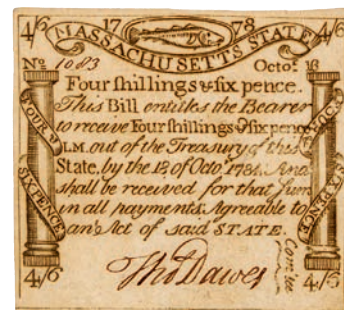 4/6 17 78 4/6
MASSACHUSETTS STATE
No 1083 Octo. 18
Four ſhillings & ſix pence.
This Bill entitles the Bearer
to receive Four ſhillings & ſix pence
L.M. out of the Treasury of this
State, by the 18. of Octo. 1784. And
shall be received for that ſum
in all payments. Agreeable to
an Act of said STATE.
FOUR S
SIX PENCE
SIX PENCE
Tho Dawes
Com'tee
4/6 4/6